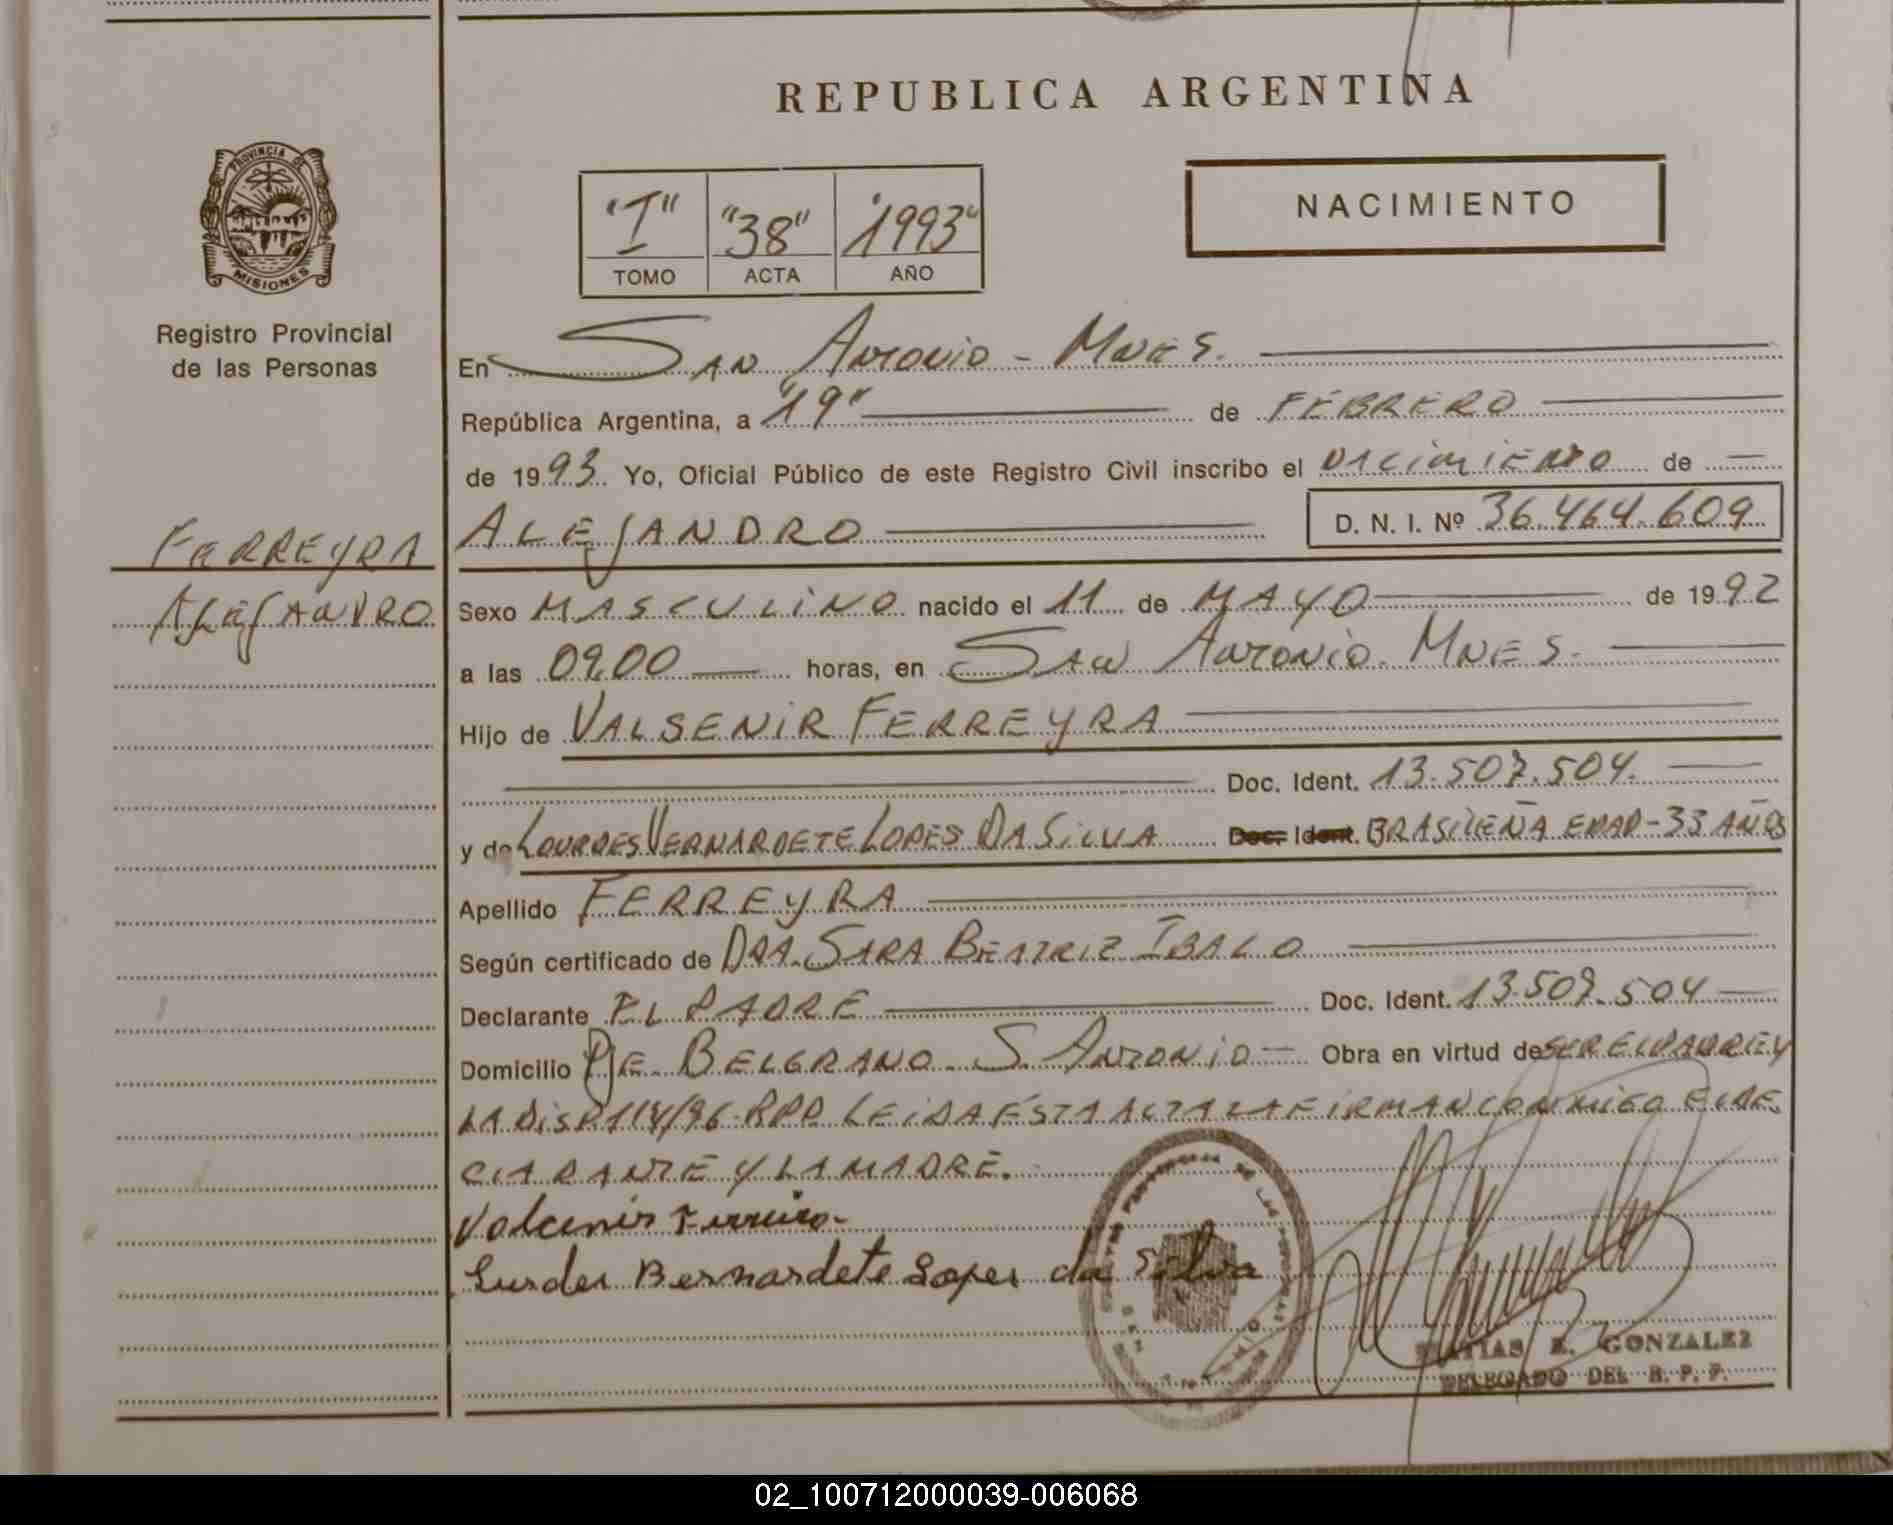 REPUBLICA ARGENTINA
PROVINCIA DE
MISIONES
Registro Provincial
de las Personas
"I" "38" "1993"
TOMO ACTA AÑO
NACIMIENTO
En San Antonio - Mnes.
República Argentina, a "19" de FEBRERO
de 1993. Yo, Oficial Público de este Registro Civil inscribo el NACIMIENTO de
ALEJANDRO D. N. I. Nº 36.464.609
FERREYRA
ALEJANDRO
Sexo MASCULINO nacido el 11 de MAYO de 1992
a las 09,00 horas, en San Antonio. Mnes.
Hijo de VALSENIR FERREYRA
Doc. Ident. 13.507.504.
y de LOURDES VERNARDETE LOPES DA SILVA Doc. Ident. BRASILEÑA EDAD-33 AÑOS
Apellido FERREYRA
Según certificado de DRA. SARA BEATRIZ IBALO
Declarante EL PADRE Doc. Ident. 13.507.504
Domicilio PJE. BELGRANO. S. ANTONIO Obra en virtud de SER EL PADRE Y
LA DISP. RPP. LEIDA ESTA ACTA LA FIRMAN CONMIGO EL DE
CLARANTE Y LA MADRE.
Valcenir Ferreira
Lurdes Bernardete Lopes da Silva
MATIAS E. GONZALEZ
DELEGADO DEL R. P. P.
02_100712000039-006068